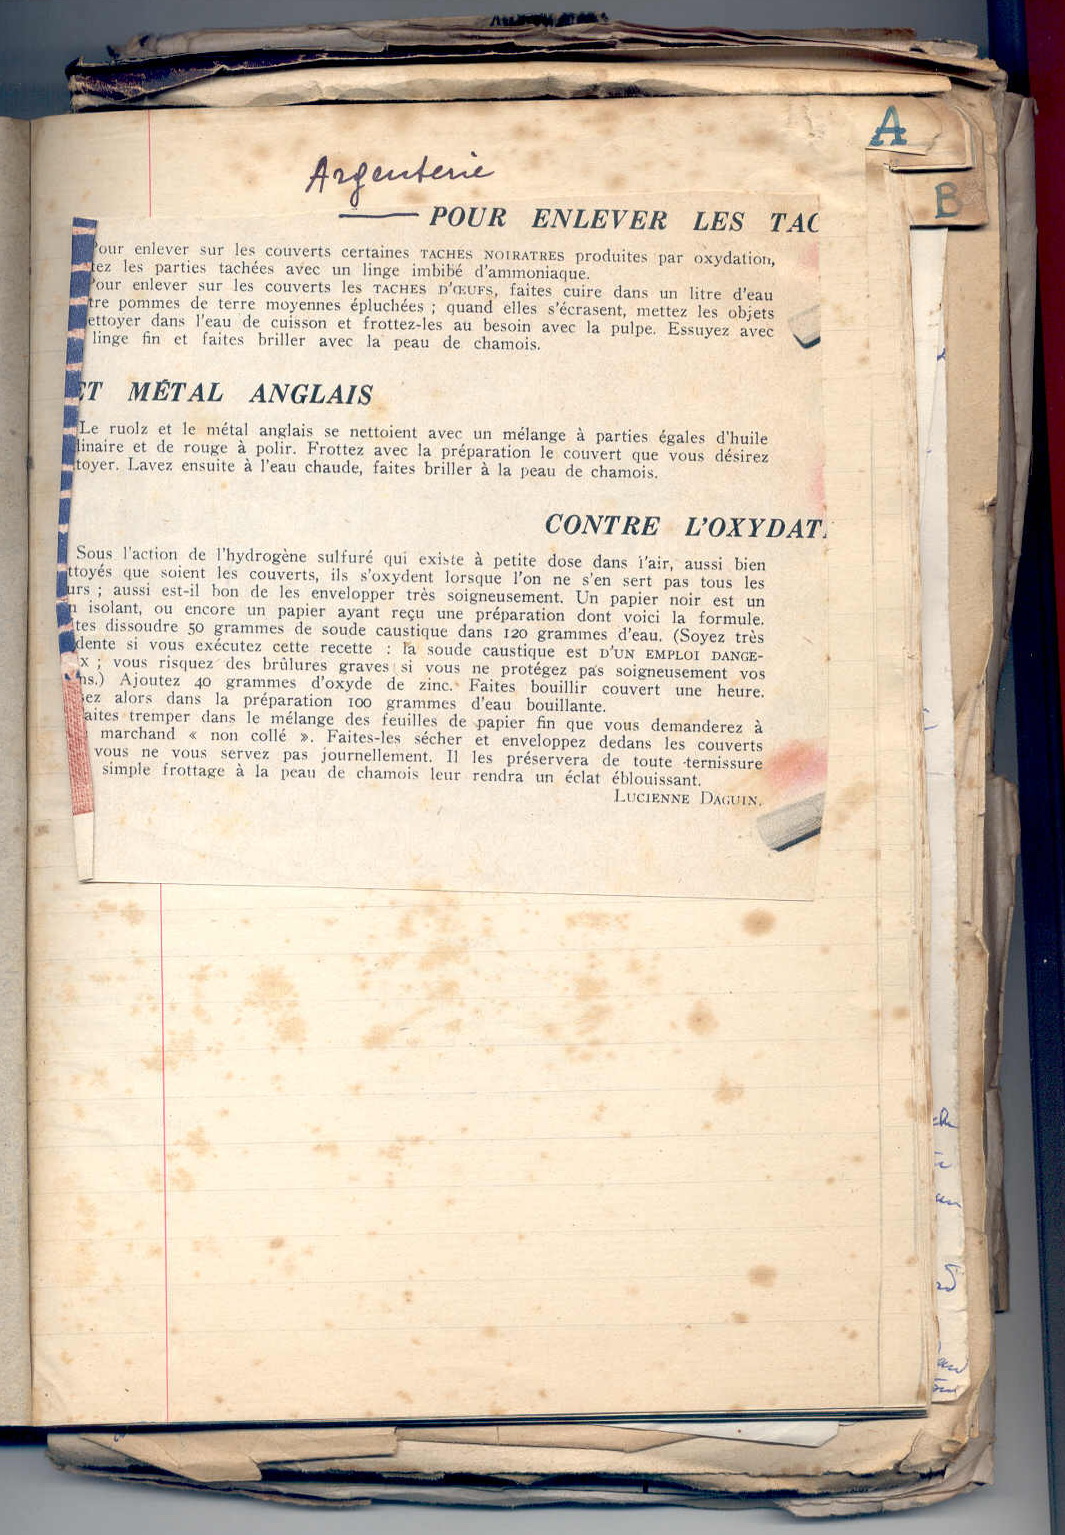 A
Argenterie
B
POUR ENLEVER LES TAC
Pour enlever sur les couverts certaines TACHES NOIRATRES produites par oxydation,
tez les parties tachées avec un linge imbibé d'ammoniaque.
Pour enlever sur les couverts les TACHES D'ŒUFS, faites cuire dans un litre d'eau
tre pommes de terre moyennes épluchées ; quand elles s'écrasent, mettez les objets
ettoyer dans l'eau de cuisson et frottez-les au besoin avec la pulpe. Essuyez avec
linge fin et faites briller avec la peau de chamois.
ET MÉTAL ANGLAIS
Le ruolz et le métal anglais se nettoient avec un mélange à parties égales d'huile
linaire et de rouge à polir. Frottez avec la préparation le couvert que vous désirez
toyer. Lavez ensuite à l'eau chaude, faites briller à la peau de chamois.
CONTRE L'OXYDAT
Sous l'action de l'hydrogène sulfuré qui existe à petite dose dans l'air, aussi bien
ttoyés que soient les couverts, ils s'oxydent lorsque l'on ne s'en sert pas tous les
urs ; aussi est-il bon de les envelopper très soigneusement. Un papier noir est un
n isolant, ou encore un papier ayant reçu une préparation dont voici la formule.
tes dissoudre 50 grammes de soude caustique dans 120 grammes d'eau. (Soyez très
dente si vous exécutez cette recette : la soude caustique est D'UN EMPLOI DANGE-
X ; vous risquez des brûlures graves si vous ne protégez pas soigneusement vos
ns.) Ajoutez 40 grammes d'oxyde de zinc. Faites bouillir couvert une heure.
sez alors dans la préparation 100 grammes d'eau bouillante.
aites tremper dans le mélange des feuilles de papier fin que vous demanderez à
marchand « non collé ». Faites-les sécher et enveloppez dedans les couverts
vous ne vous servez pas journellement. Il les préservera de toute ternissure
simple frottage à la peau de chamois leur rendra un éclat éblouissant.
LUCIENNE DAGUIN.